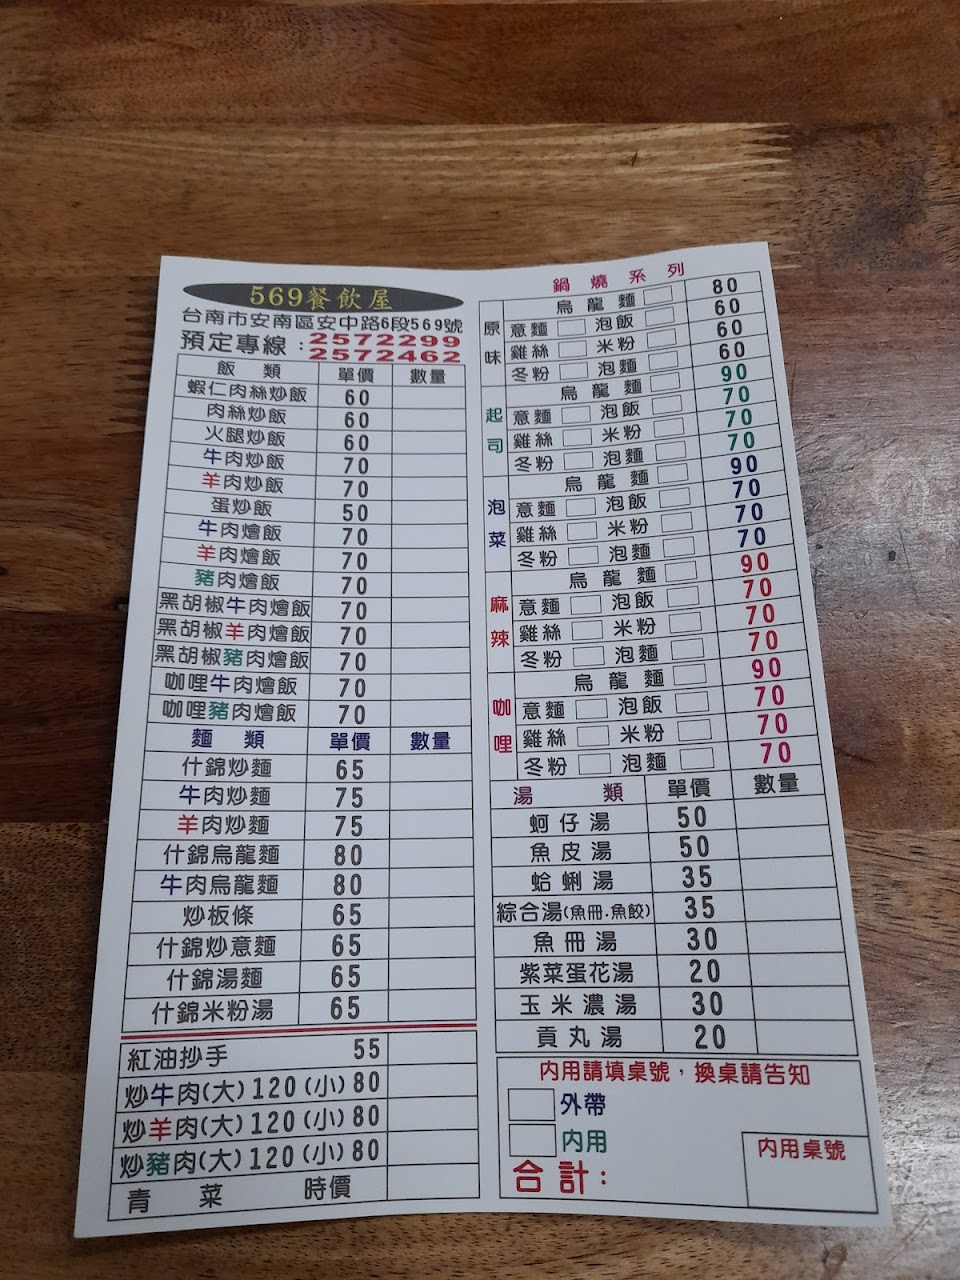 569餐飲屋
台南市安南區安中路6段569號
預定專線：2572299
2572462
飯 類 單價 數量
蝦仁肉絲炒飯 60
肉絲炒飯 60
火腿炒飯 60
牛肉炒飯 70
羊肉炒飯 70
蛋炒飯 50
牛肉燴飯 70
羊肉燴飯 70
豬肉燴飯 70
黑胡椒牛肉燴飯 70
黑胡椒羊肉燴飯 70
黑胡椒豬肉燴飯 70
咖哩牛肉燴飯 70
咖哩豬肉燴飯 70
麵 類 單價 數量
什錦炒麵 65
牛肉炒麵 75
羊肉炒麵 75
什錦烏龍麵 80
牛肉烏龍麵 80
炒板條 65
什錦炒意麵 65
什錦湯麵 65
什錦米粉湯 65
紅油抄手 55
炒牛肉(大)120(小)80
炒羊肉(大)120(小)80
炒豬肉(大)120(小)80
青菜 時價
鍋燒系列
原味
烏龍麵 80
意麵 泡飯 60
雞絲 米粉 60
冬粉 泡麵 60
起司
烏龍麵 90
意麵 泡飯 70
雞絲 米粉 70
冬粉 泡麵 70
泡菜
烏龍麵 90
意麵 泡飯 70
雞絲 米粉 70
冬粉 泡麵 70
麻辣
烏龍麵 90
意麵 泡飯 70
雞絲 米粉 70
冬粉 泡麵 70
咖哩
烏龍麵 90
意麵 泡飯 70
雞絲 米粉 70
冬粉 泡麵 70
湯 類 單價 數量
蚵仔湯 50
魚皮湯 50
蛤蜊湯 35
綜合湯(魚冊.魚餃) 35
魚冊湯 30
紫菜蛋花湯 20
玉米濃湯 30
貢丸湯 20
內用請填桌號，換桌請告知
外帶
內用
合計：
內用桌號